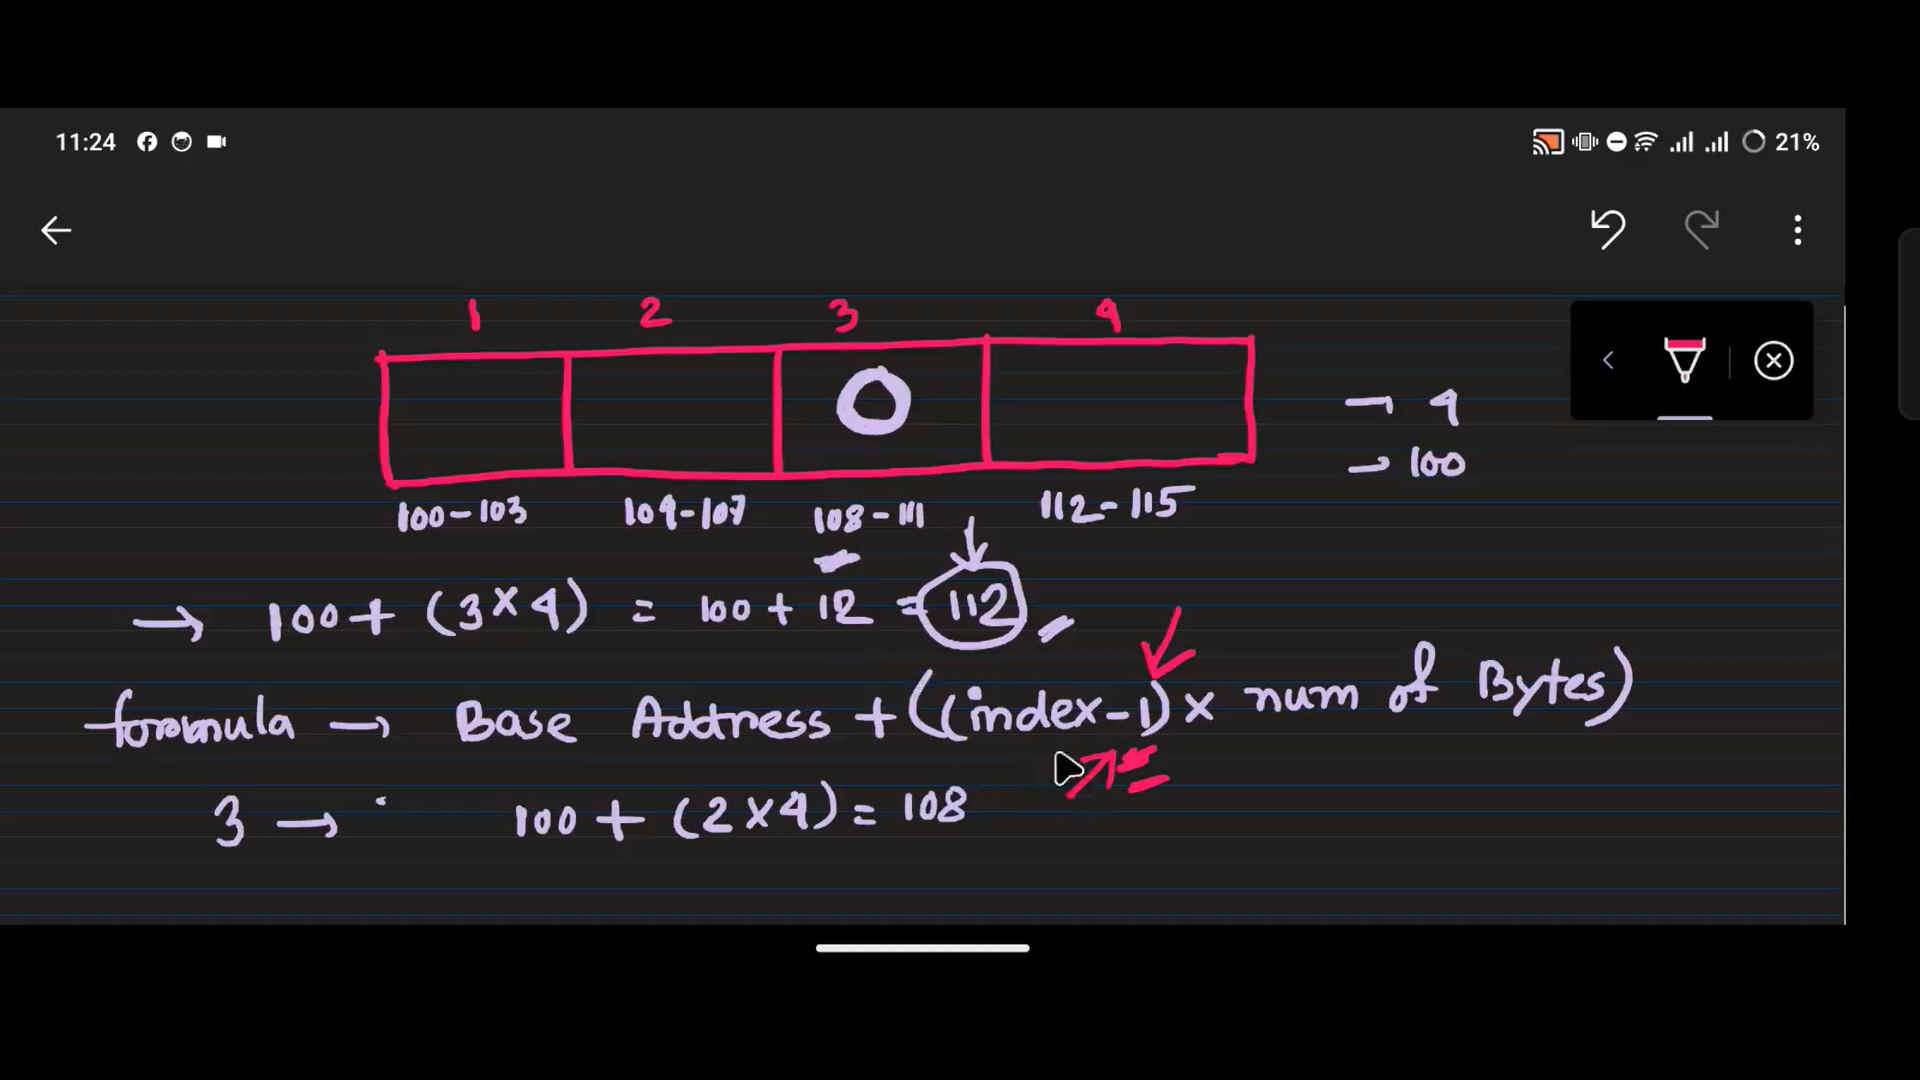 11:24 21%
1 2 3 4
→ 4
→ 100
100-103 104-107 108-111 112-115
→ 100 + (3 × 4) = 100 + 12 = 112
formula → Base Address + ((index-1) × num of Bytes)
3 → 100 + (2 × 4) = 108